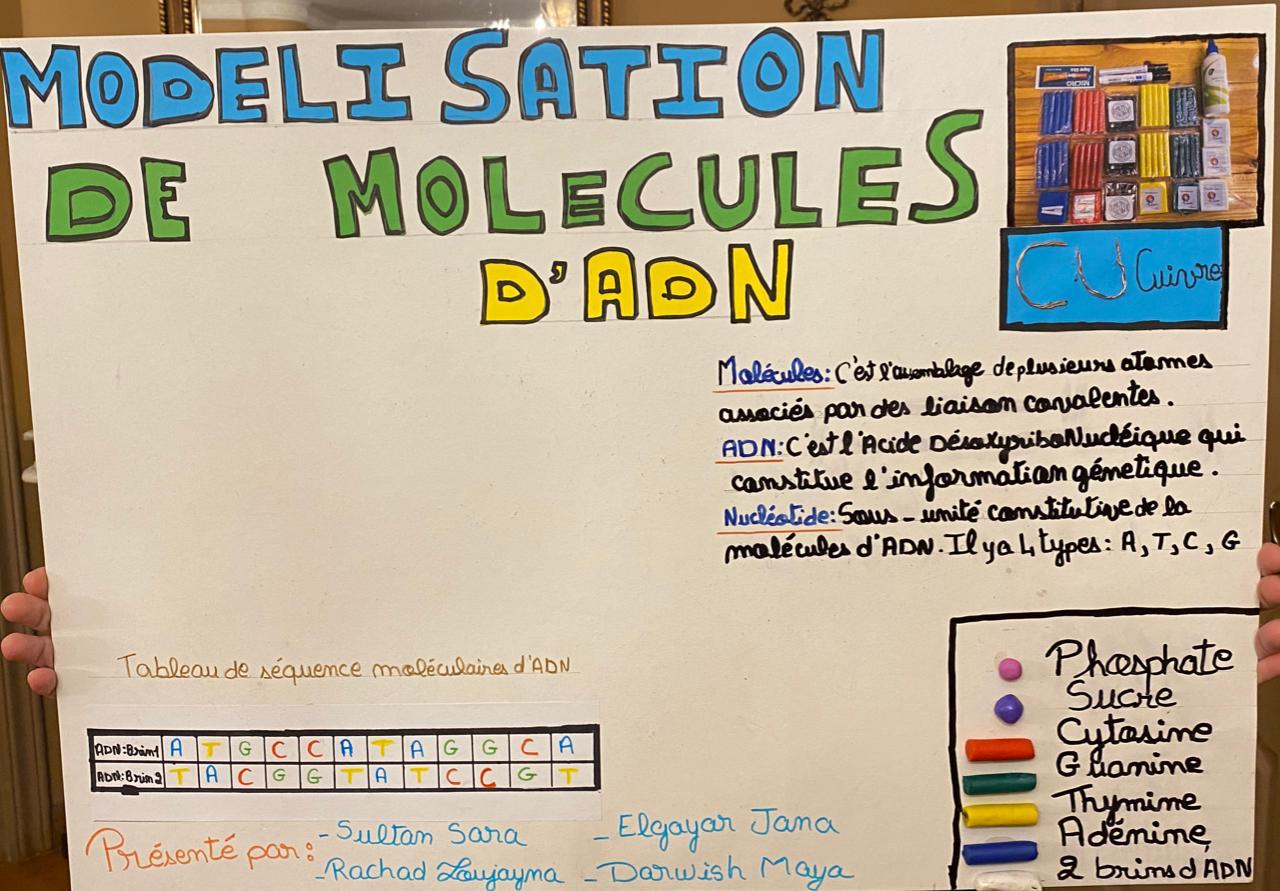 MODELISATION
DE MOLECULES
D'ADN
CU Cuivre
Molécules: C'est l'assemblage de plusieurs atomes
associés par des liaison covalentes.
ADN: C'est l'Acide DésoxyriboNucléique qui
constitue l'information génetique.
Nucléotide: Sous-unité constitutive de la
molécules d'ADN. Il y a 4 types: A, T, C, G
Tableau de séquence moléculaires d'ADN
ADN:Brin1 A T G C C A T A G G C A
ADN:Brin2 T A C G G T A T C C G T
Présenté par:
- Sultan Sara
- Rachad Loujayna
- Elgayar Jana
- Darwish Maya
Phosphate
Sucre
Cytosine
Guanine
Thymine
Adénine
2 brins d'ADN